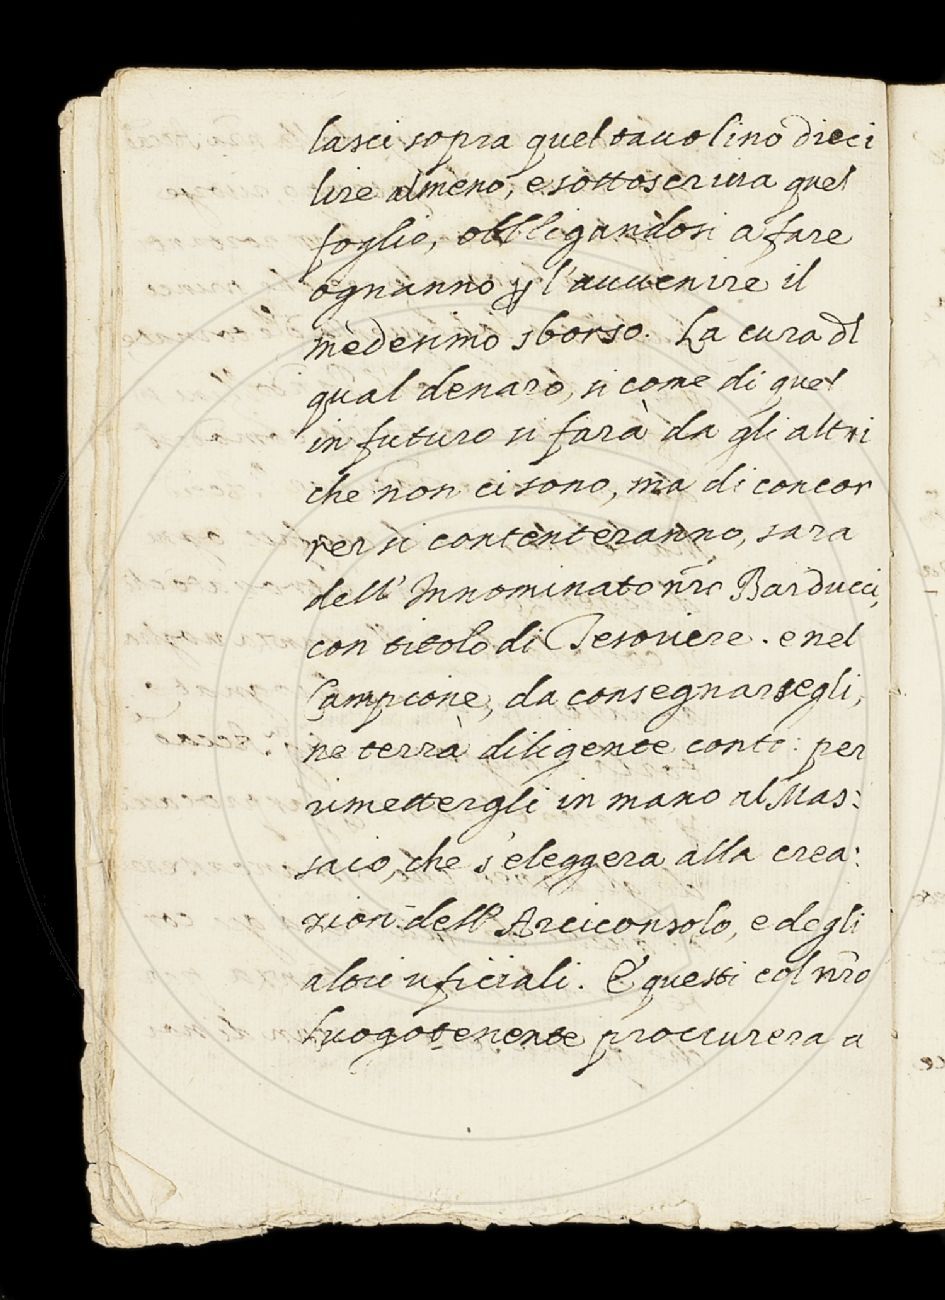 lasci sopra quel tauolino dieci
lire almeno, e sottoscriua quel
foglio, obbligandosi a fare
ognanno p l'auuenire il
medesimo sborso. La cura dl
qual denaro, si come di quel
in futuro si farà da gli altri
che non ci sono, mà di concor
rer si contenteranno, sara
dell' Innominato nro Barducci,
con titolo di Tesoriere. e nel
Campione, da consegnarsegli,
ne terrà diligente conto: per
rimettergli in mano al Mas:
saio, che s'eleggera alla crea:
zion dell' Arciconsolo, e degli
altri uficiali. E questi col nro
Luogotenente proccurera a